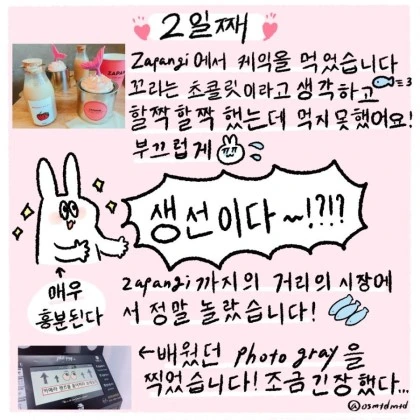 2일째
Zapangi에서 케익을 먹었습니다
꼬리는 초콜릿이라고 생각하고
할짝할짝 했는데 먹지 못했어요!
부끄럽게
생선이다~!?!?!
매우
흥분된다
Zapangi까지의 거리의 시장에
서 정말 놀랐습니다!
←배웠던 photo gray을
찍었습니다! 조금 긴장했다...